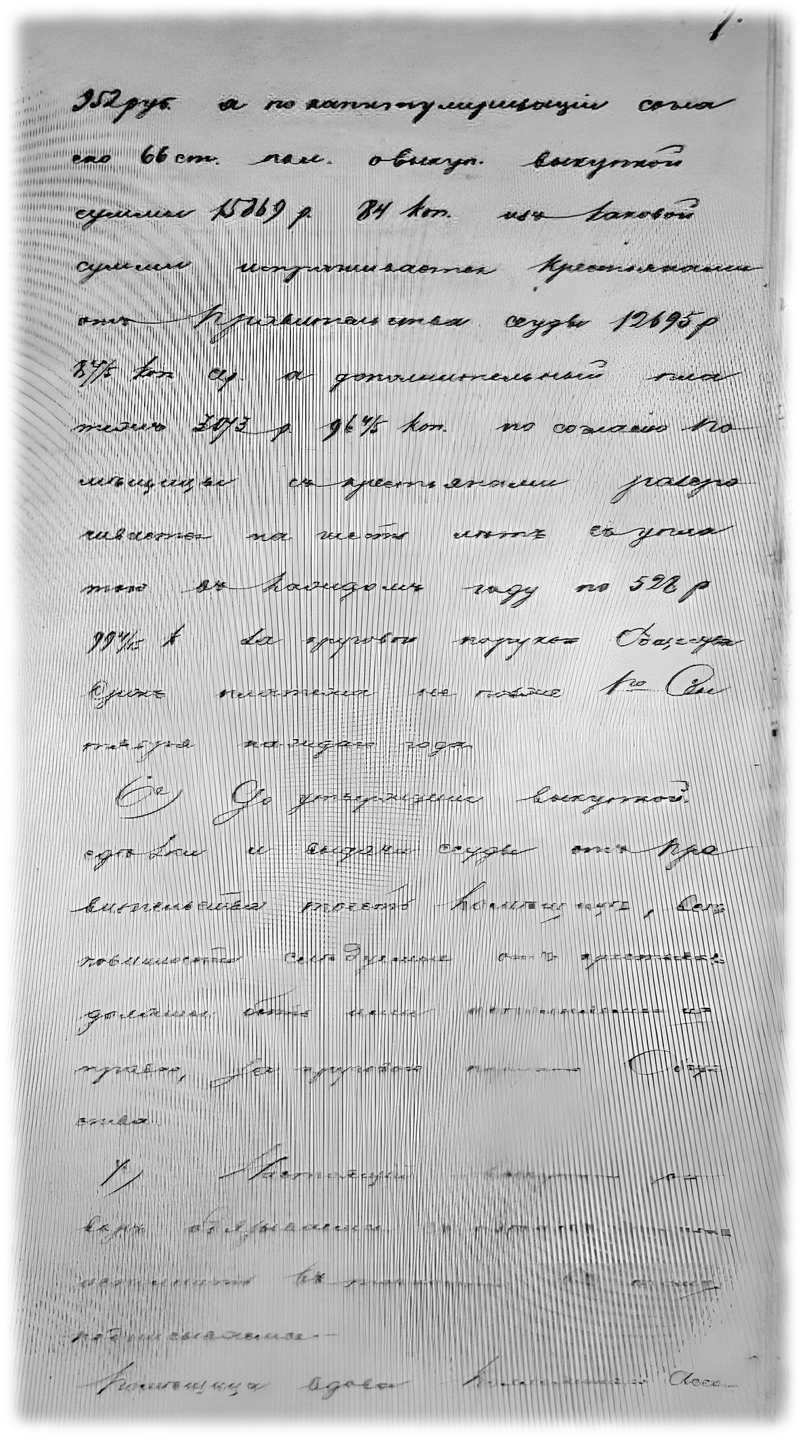 952 руб. а по капитулиризаціи согла
сно 66 ст. пол. о выкуп. выкупной
суммы 15869 р. 84 коп. изъ каковой
суммы испрашивается крестьянами
отъ Правительства ссуды 12695 р
87 4/5 коп ср. а дополнительный пла
тежъ 3173 р. 96 4/5 коп. по согласію По
мѣщицы съ крестьянами разсро
чивается на шесть лѣтъ съ упла
тою въ каждомъ году по 528 р
99 4/15 к за круговой порукою Общества
Срокъ платежа не позже 1го Сен
тября каждаго года
6е) До утвержденія выкупной
сдѣлки и выдачи ссуды отъ Пра
вительства помѣщицѣ, всѣ
повинности слѣдуемыя отъ крестьянъ
должны быть ими исполняемы ис
правно, за круговою Обще
ства.
7) Настоящій выкупной до
воръ обязываемся
исполнять въ точности въ чемъ
подписываемся
Помѣщица вдова Ассе